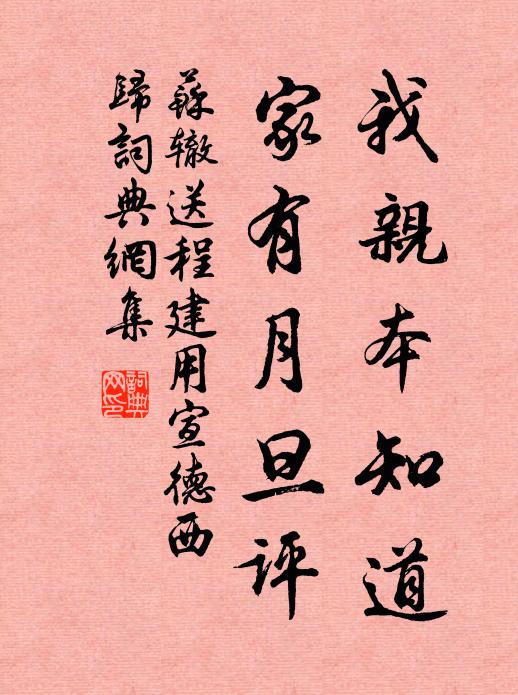 我親本知道
家有月旦評
蘇辙送程建用宣德西
歸詞典網集
詞典网印